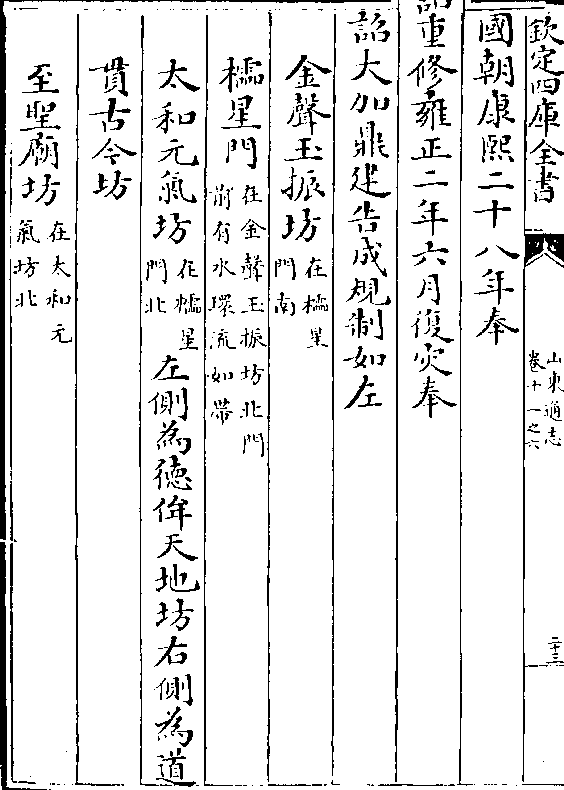 欽定四庫全書
山東通志
卷十一之六
二十三
國朝康熙二十八年奉
詔重修雍正二年六月復灾奉
詔大加鼎建告成規制如左
金聲玉振坊在櫺星門南
櫺星門在金聲玉振坊北門前有水環流如帶
太和元氣坊在櫺星門北左側為徳侔天地坊右側為道
貫古今坊
至聖廟坊在太和元氣坊北